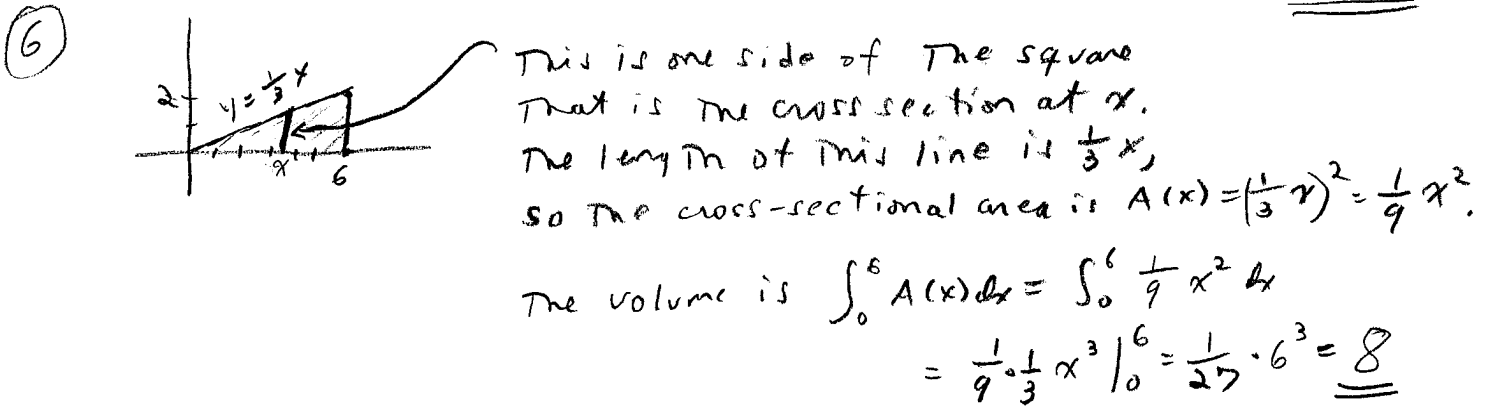 ⑥
This is one side of The square
2 y = 1/3 x
That is The cross section at x.
The length of This line is 1/3 x,
x 6
so The cross-sectional area is A(x) = (1/3 x)² = 1/9 x².
The volume is ∫₀⁶ A(x) dx = ∫₀⁶ 1/9 x² dx
= 1/9 · 1/3 x³ |₀⁶ = 1/27 · 6³ = 8